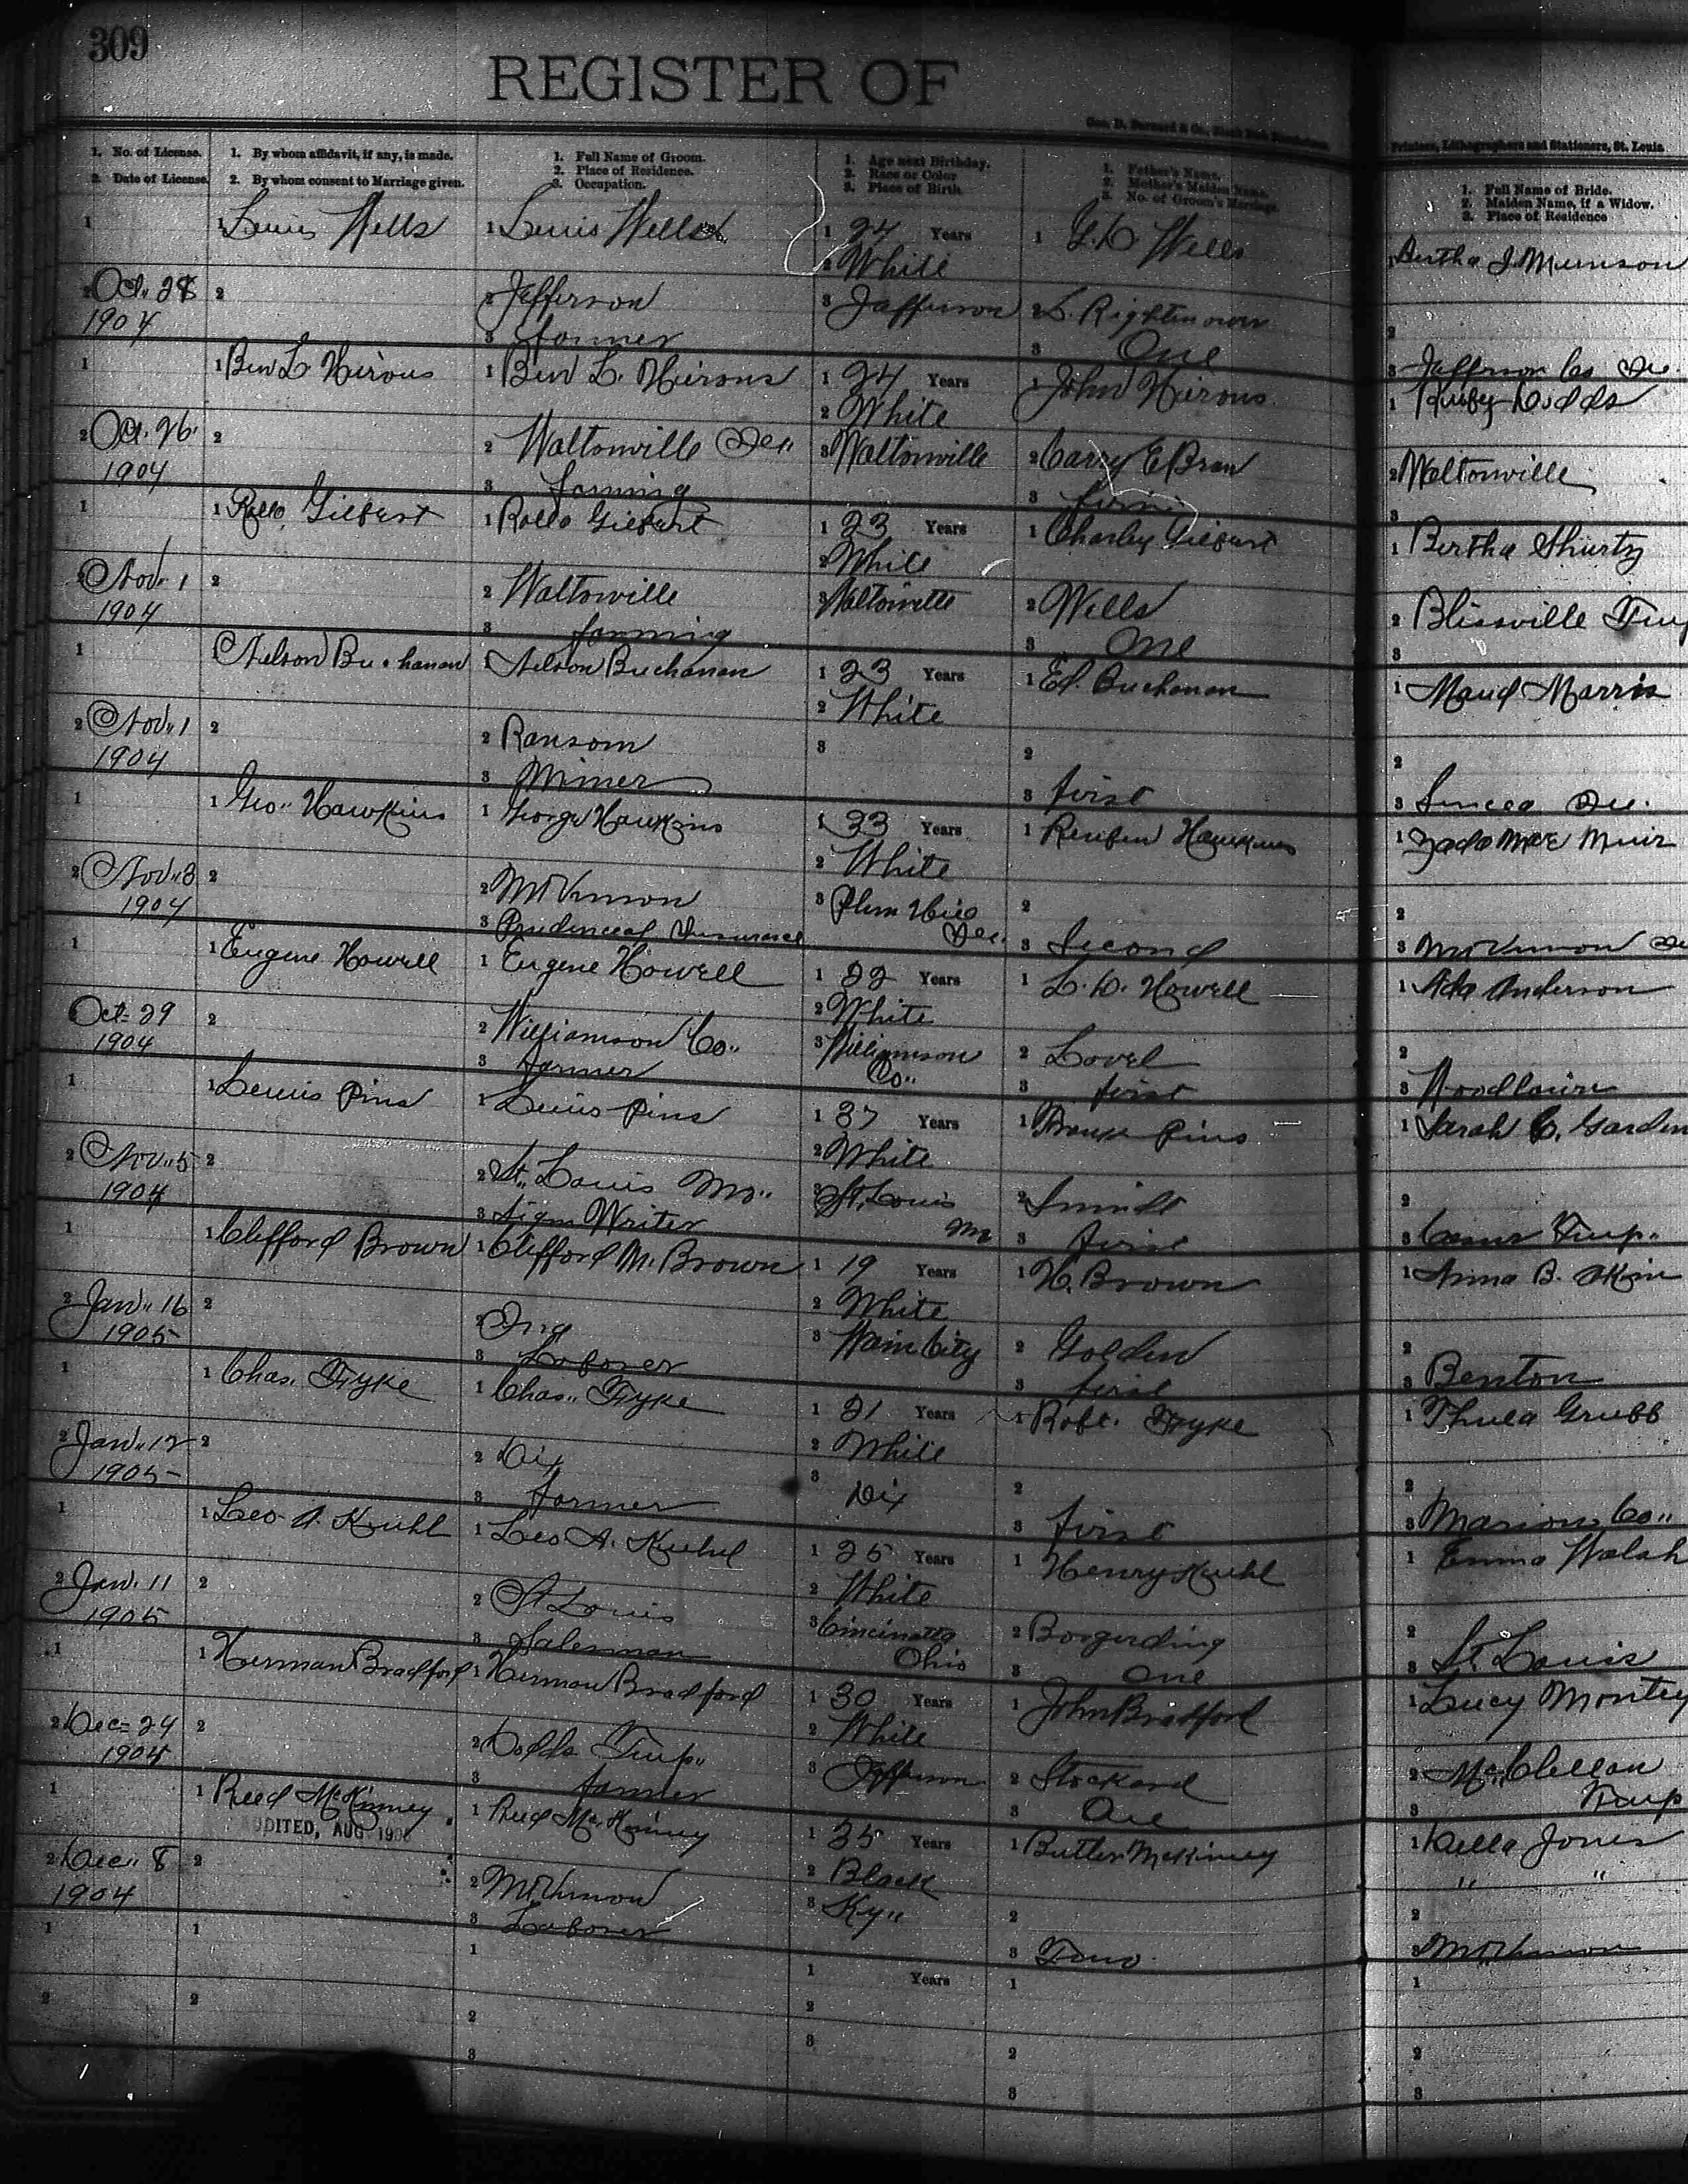 309
REGISTER OF
Geo. D. Barnard & Co., Blank Book
Printers, Lithographers and Stationers, St. Louis
1. No. of License.
2. Date of License.
1. By whom affidavit, if any, is made.
2. By whom consent to Marriage given.
1. Full Name of Groom.
2. Place of Residence.
3. Occupation.
1. Age next Birthday.
2. Race or Color
3. Place of Birth.
1. Father's Name.
2. Mother's Maiden Name.
3. No. of Groom's Marriage.
1. Full Name of Bride.
2. Maiden Name, if a Widow.
3. Place of Residence
1
1 Lewis Wells
1 Lewis Wells
1 24 Years
1 Wells
1 Bertha J. Munson
2 White
2 Oct. 28
1904
2
2 Jefferson
3 Jefferson
2
2
3 farmer
3 One
3 Jefferson Co
1
1 Ben L. Hirons
1 Ben L. Hirons
1 24 Years
1 John Hirons
1 Ruby Dodds
2 White
2 Oct. 26
1904
2
2 Waltonville Ill
3 Waltonville
2 Carry E
2 Waltonville
3 farming
3
3
1
1 Rollo Gilbert
1 Rollo Gilbert
1 23 Years
1 Charley Gilbert
1 Bertha Shurtz
2 White
2 Nov. 1
1904
2
2 Waltonville
3 Waltonville
2 Wells
2 Blissville
3 farming
3 One
3
1
1 Nelson Buchanan
1 Nelson Buchanan
1 23 Years
1 Ed. Buchanan
1 Maud Marris
2 White
2 Nov. 1
1904
2
2 Ransom
3
2
2
3 Miner
3 first
3
1
1 Geo. Hawkins
1 George Hawkins
1 33 Years
1 Reuben Hawkins
1 Muir
2 White
2 Nov. 3
1904
2
2 Mt Vernon
3 Plum Hill
Ill.
2
2
3 Prudencal Insurance
3 Second
3 Mt Vernon
1
1 Eugene Howell
1 Eugene Howell
1 22 Years
1 L. D. Howell
1 Ada Anderson
2 White
Oct. 29
1904
2
2 Williamson Co.
3 Williamson
Co.
2 Lovel
2
3 farmer
3 first
3 Woodlawn
1
1 Lewis Pins
1 Lewis Pins
1 37 Years
1 Pins
1 Sarah C. Garden
2 White
2 Nov. 5
1904
2
2 St. Louis Mo.
3 St. Louis
Mo
2
2
3 Sign Writer
3 first
3 Twp.
1
1 Clifford Brown
1 Clifford M. Brown
1 19 Years
1 H. Brown
1 Anna B. Akin
2 White
2 Jan. 16
1905
2
2 Ina
3 Ham City
2 Golden
2
3 Laborer
3 first
3 Benton
1
1 Chas. Fyke
1 Chas. Fyke
1 21 Years
1 Robt. Fyke
1 Grubb
2 White
2 Jan. 12
1905
2
2 Dix
3 Dix
2
2
3 farmer
3 first
3 Marion Co.
1
1 Leo A. Kuhl
1 Leo A. Kuhl
1 25 Years
1 Henry Kuhl
1 Emma Walsh
2 White
2 Jan. 11
1905
2
2 St Louis
3 Cincinatta
Ohio
2 Borgerding
2
3 Salesman
3 One
3 St. Louis
1
1 Herman Bradford
1 Herman Bradford
1 30 Years
1 John Bradford
1 Lucy
2 White
2 Dec. 24
1904
2
2 Dodds Twp.
3 Jefferson
2 Stockard
2 McClellan
3 farmer
3 One
3 Twp
1
1 Reed McKinney
AUDITED, AUG. 190
1 Reed McKinney
1 35 Years
1 Butler McKinney
1 Della Jones
2 Black
" "
2 Dec. 8
1904
2
2 Mt Vernon
3 Ky.
2
2
3 Laborer
3 Two
3 Mt Vernon
1
1
1
1 Years
1
1
2
2
2
2
2
2
3
3
3
3